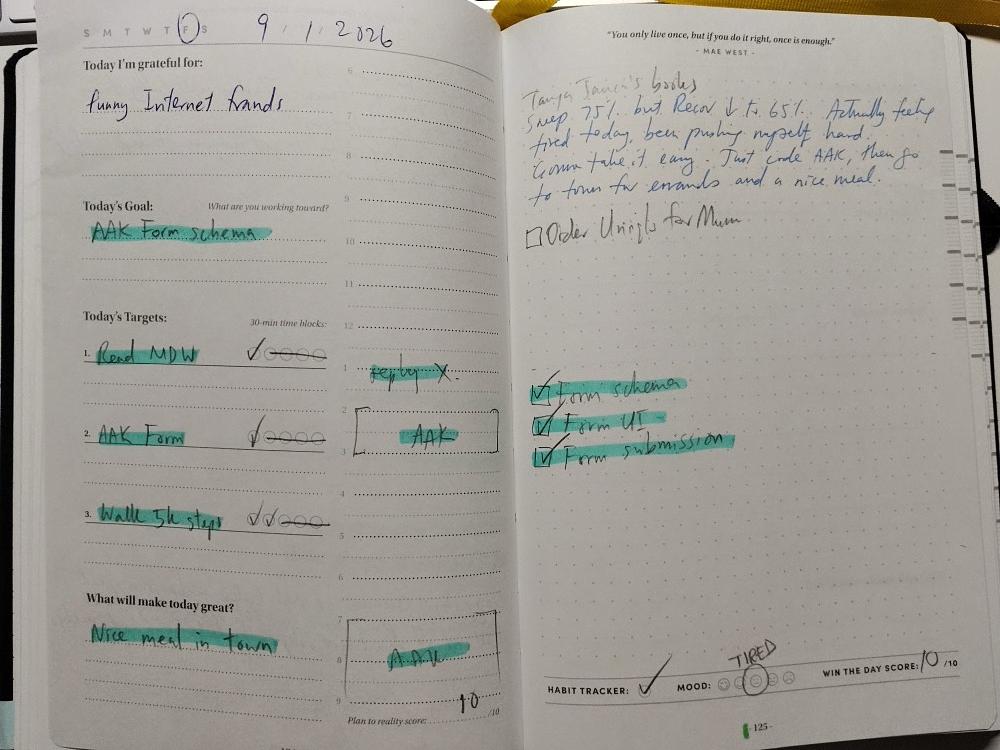 S M T W T F S 9 / 1 / 2026
Today I'm grateful for:
funny Internet frands
Today's Goal: What are you working toward?
AAK Form schema
Today's Targets: 30-min time blocks:
1. Read MDW
2. AAK Form
3. Walk 5k steps
What will make today great?
Nice meal in town
6
7
8
9
10
11
12
1
reply X.
2
AAK
3
4
5
6
7
8 AAK
9
Plan to reality score: 10 /10
"You only live once, but if you do it right, once is enough."
- MAE WEST -
books
Sleep 75% but Recov ↓ to 65%. Actually feeling
tired today, been pushing myself hard.
Gonna take it easy. Just code AAK, then go
to town for errands and a nice meal.
Order for Mum
Form schema
Form UI
Form submission
TIRED
HABIT TRACKER: ✓ MOOD: WIN THE DAY SCORE: 10 /10
- 125 -